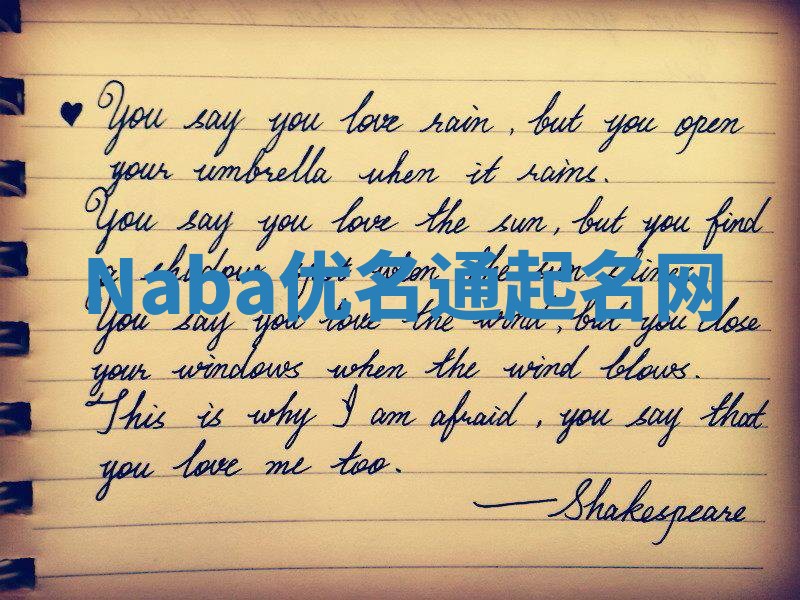 ♥ You say you love rain, but you open
your umbrella when it rains.
You say you love the sun, but you find
a shadow spot when the sun shines.
Naba优名通起名网
You say you love the wind, but you close
your windows when the wind blows.
This is why I am afraid, you say that
you love me too.
—Shakespeare